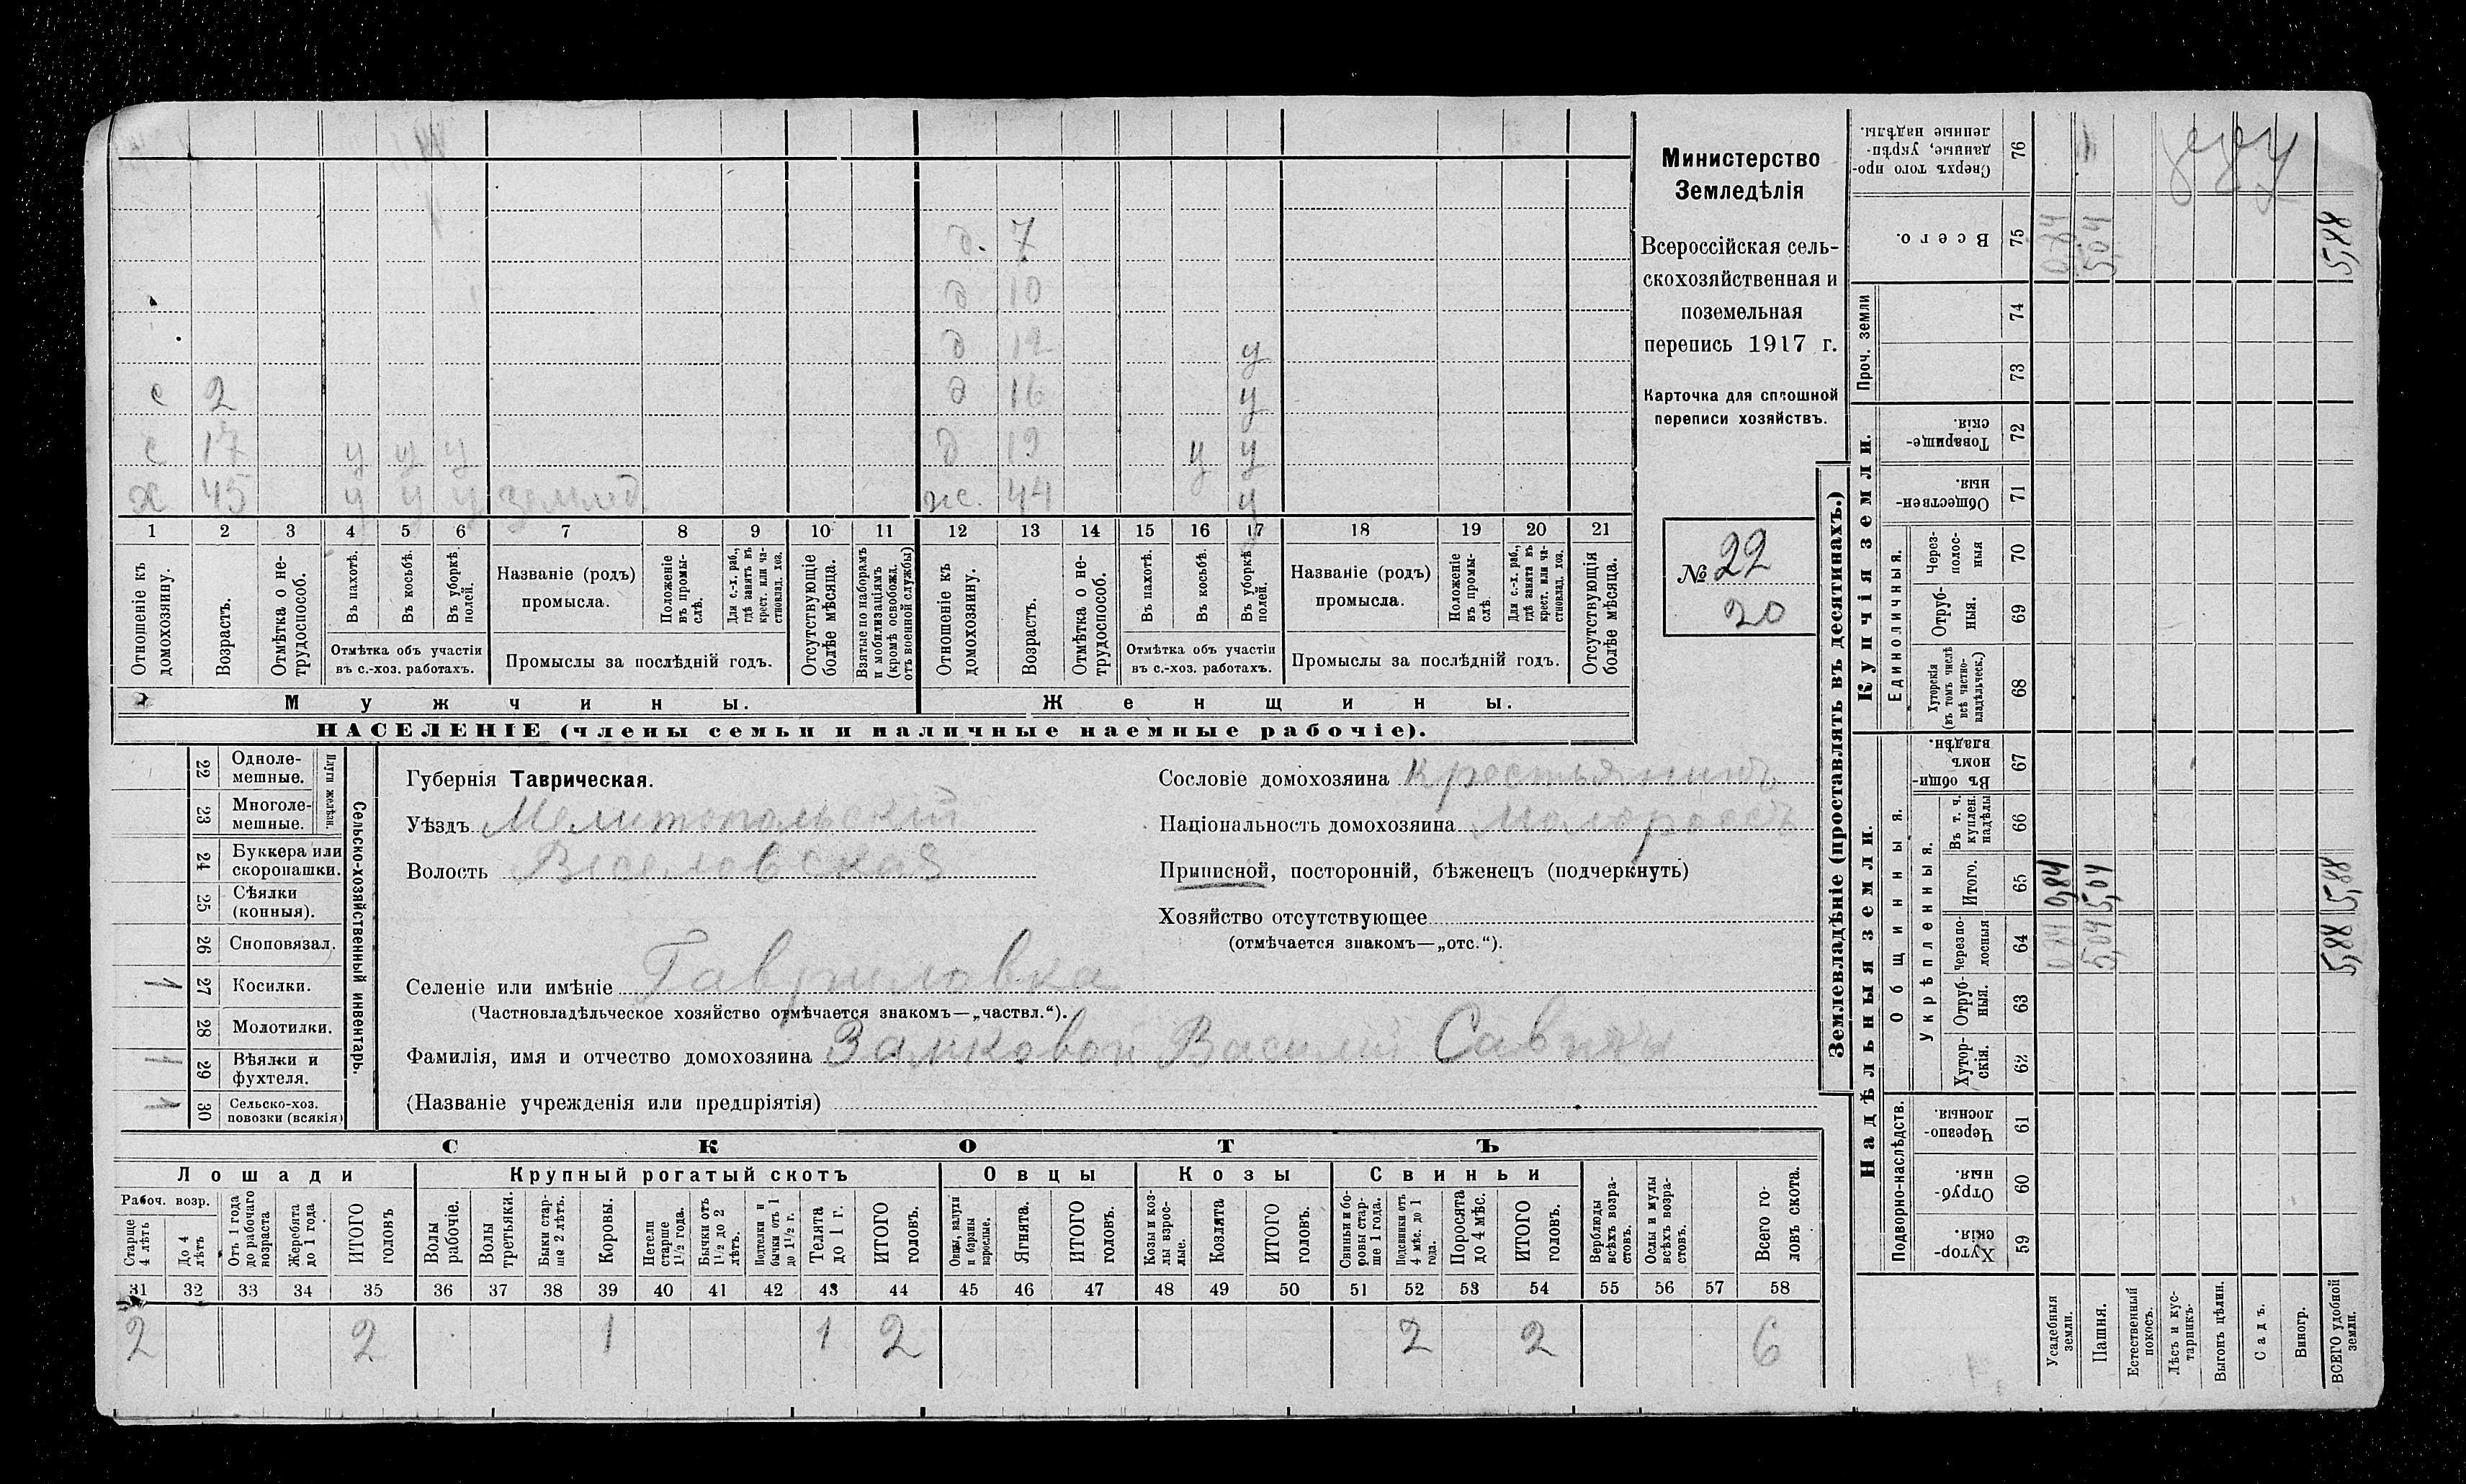 д. 7
д 10
д 12 у
с 2 д 16 у
с 17 у у у д 19 у у
х 45 у у у землед. ж. 44 у
1 2 3 4 5 6 7 8 9 10 11 12 13 14 15 16 17 18 19 20 21
Отношеніе къ домохозяину.
Возрастъ.
Отмѣтка о не-
трудоспособ.
Въ пахотѣ.
Въ косьбѣ.
Въ уборкѣ
полей.
Отмѣтка объ участіи
въ с.-хоз. работахъ.
Названіе (родъ)
промысла.
Положеніе
въ промы-
слѣ.
Для с.-х. раб.,
гдѣ занятъ въ
крест. или ча-
стновлад. хоз.
Промыслы за послѣдній годъ.
Отсутствующіе
болѣе мѣсяца.
Взятые по наборамъ
и мобилизаціямъ
(кромѣ освобожд.
отъ военной службы)
Отношеніе къ
домохозяину.
Возрастъ.
Отмѣтка о не-
трудоспособ.
Въ пахотѣ.
Въ косьбѣ.
Въ уборкѣ
полей.
Отмѣтка объ участіи
въ с.-хоз. работахъ.
Названіе (родъ)
промысла.
Положеніе
въ промы-
слѣ.
Для с.-х. раб.,
гдѣ занята въ
крест. или ча-
стновлад. хоз.
Промыслы за послѣдній годъ.
Отсутствующія
болѣе мѣсяца.
Мужчины.
Женщины.
НАСЕЛЕНІЕ (члены семьи и наличные наемные рабочіе).
Министерство
Земледѣлія
Всероссійская сель-
скохозяйственная и
поземельная
перепись 1917 г.
Карточка для сплошной
переписи хозяйствъ.
№ 22
20
Сельско-хозяйственный инвентарь.
Плуги желѣзн.
22 Одноле-
мешные.
23 Многоле-
мешные.
24 Буккера или
скоропашки.
25 Сѣялки
(конныя).
26 Сноповязал.
1 27 Косилки.
28 Молотилки.
1 29 Вѣялки и
фухтеля.
1 30 Сельско-хоз.
повозки (всякія)
Губернія Таврическая.
Уѣздъ Мелитопольскій
Волость Веселовская
Сословіе домохозяина крестьянинъ
Національность домохозяина малороссъ
Приписной, посторонній, бѣженецъ (подчеркнуть)
Хозяйство отсутствующее
(отмѣчается знакомъ—„отс.“).
Селеніе или имѣніе Гавриловка
(Частновладѣльческое хозяйство отмѣчается знакомъ—„частвл.“).
Фамилія, имя и отчество домохозяина Замковой Василій Савичъ
(Названіе учрежденія или предпріятія)
СКОТЪ
Лошади
Крупный рогатый скотъ
Овцы
Козы
Свиньи
Рабоч. возр.
Старше
4 лѣтъ
До 4
лѣтъ
Отъ 1 года
до рабочаго
возраста
Жеребята
до 1 года
ИТОГО
головъ
Волы
рабочіе.
Волы
третьяки.
Быки стар-
ше 2 лѣтъ.
Коровы.
Нетели
старше
1½ года.
Бычки отъ
1½ до 2
лѣтъ.
Подтелки и
бычки отъ 1
до 1½ г.
Телята
до 1 г.
ИТОГО
головъ.
Овцы, валухи
и бараны
взрослые.
Ягнята.
ИТОГО
головъ.
Козы и коз-
лы взрос-
лые.
Козлята
ИТОГО
головъ.
Свиньи и бо-
ровы стар-
ше 1 года.
Подсвинки отъ
4 мѣс. до 1
года.
Поросята
до 4 мѣс.
ИТОГО
головъ.
Верблюды
всѣхъ возра-
стовъ.
Ослы и мулы
всѣхъ возра-
стовъ.
Всего го-
ловъ скота.
31 32 33 34 35 36 37 38 39 40 41 42 43 44 45 46 47 48 49 50 51 52 53 54 55 56 57 58
2 2 1 1 2 2 2 6
Землевладѣніе (проставлять въ десятинахъ.)
Надѣльныя земли.
Купчія земли.
Проч. земли
Подворно-наслѣдств.
Общинныя.
Укрѣпленныя.
Единоличныя.
Сверхъ того про-
данные, укрѣп-
ленные надѣлы.
76
Всего.
75 0,84 5,04 5,88
74
73
Товарище-
скія.
72
Обществен-
ныя.
71
Через-
полос-
ныя
70
Отруб-
ныя.
69
Хуторскія
(въ томъ числѣ
всѣ частно-
владѣльческ.)
68
Въ общи-
номъ
владѣн.
67
Въ т. ч.
куплен.
надѣлы
66
Итого.
65 0,84 5,04 5,88
Черезпо-
лосныя
64 0,84 5,04 5,88
Отруб-
ныя.
63
Хутор-
скія.
62
Черезпо-
лосныя.
61
Отруб-
ныя.
60
Хутор-
скія.
59
Усадебныя
земли.
Пашня.
Естественный
покосъ.
Лѣсъ и кус-
тарникъ.
Выгонъ цѣлин.
Садъ.
Виногр.
ВСЕГО удобной
земли.